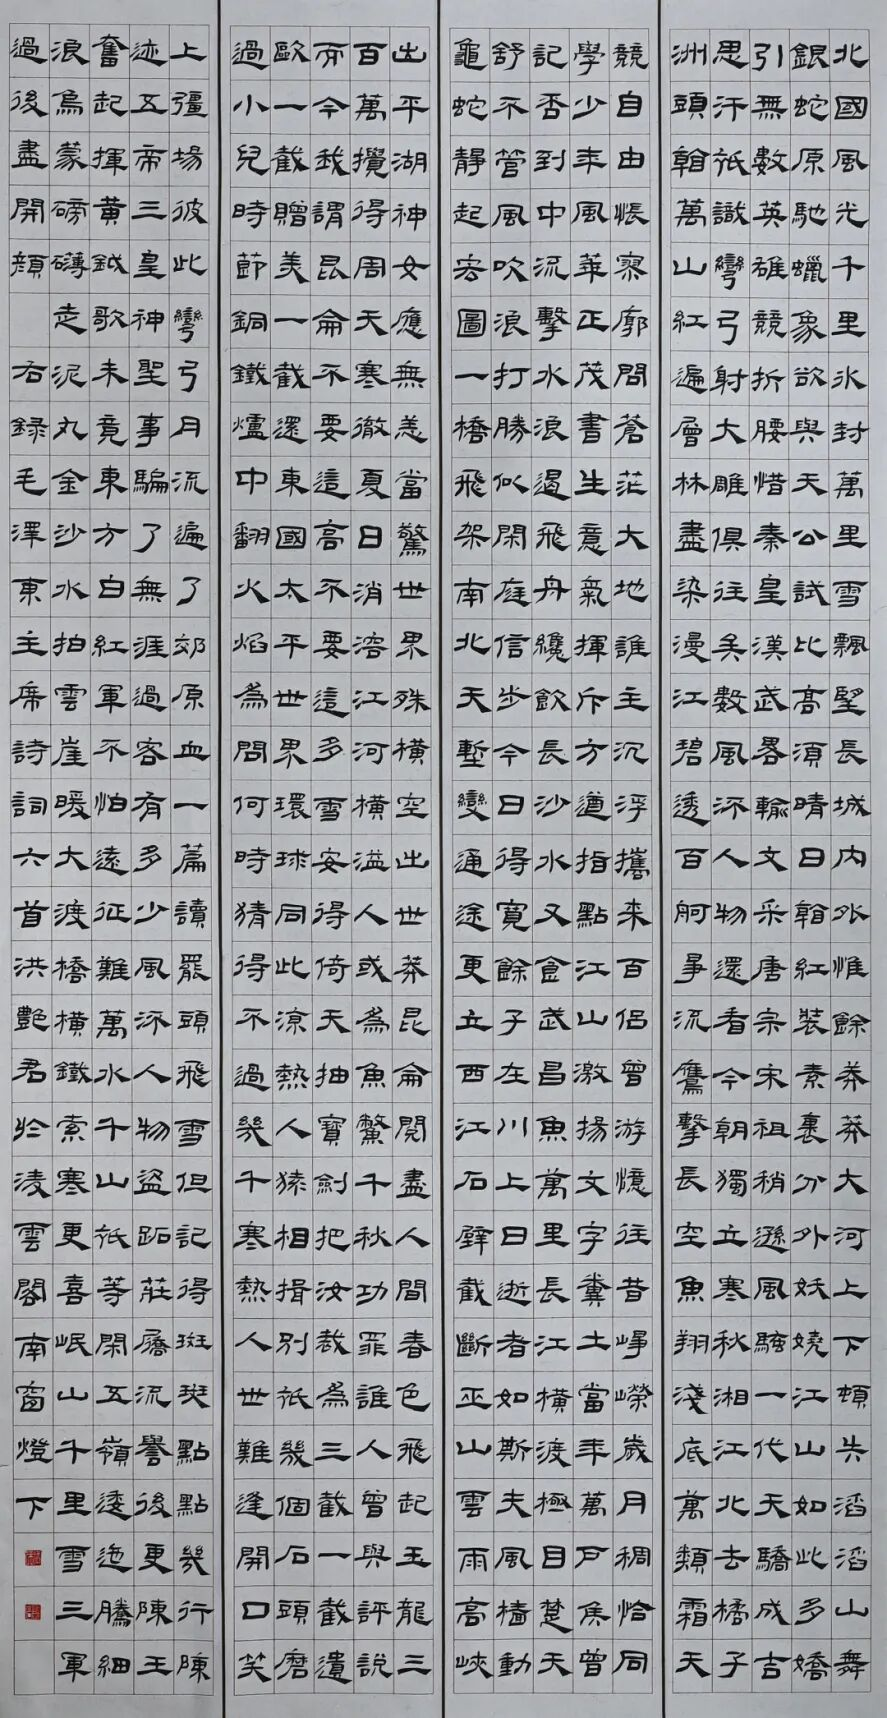 北國風光千里冰封萬里雪飄望長城內外惟餘莽莽大河上下頓失滔滔山舞
銀蛇原馳蠟象欲與天公試比高須晴日看紅裝素裹分外妖嬈江山如此多嬌
引無數英雄競折腰惜秦皇漢武畧輸文采唐宗宋祖稍遜風騷一代天驕成吉
思汗祇識彎弓射大雕俱往矣數風流人物還看今朝獨立寒秋湘江北去橘子
洲頭看萬山紅遍層林盡染漫江碧透百舸爭流鷹擊長空魚翔淺底萬類霜天
競自由悵寥廓問蒼茫大地誰主沉浮攜來百侶曾游憶往昔崢嶸歲月稠恰同
學少年風華正茂書生意氣揮斥方遒指點江山激揚文字糞土當年萬戶侯曾
記否到中流擊水浪遏飛舟纔飲長沙水又食武昌魚萬里長江橫渡極目楚天
舒不管風吹浪打勝似閑庭信步今日得寬餘子在川上曰逝者如斯夫風檣動
龜蛇靜起宏圖一橋飛架南北天塹變通途更立西江石壁截斷巫山雲雨高峽
出平湖神女應無恙當驚世界殊橫空出世莽昆侖閱盡人間春色飛起玉龍三
百萬攪得周天寒徹夏日消溶江河橫溢人或為魚鱉千秋功罪誰人曾與評說
而今我謂昆侖不要這高不要這多雪安得倚天抽寶劍把汝裁為三截一截遺
歐一截贈美一截還東國太平世界環球同此涼熱人猿相揖別祇幾個石頭磨
過小兒時節銅鐵爐中翻火焰為問何時猜得不過幾千寒熱人世難逢開口笑
上彊場彼此彎弓月流遍了郊原血一篇讀罷頭飛雪但記得斑斑點點幾行陳
迹五帝三皇神聖事騙了無涯過客有多少風流人物盜跖莊屩流譽後更陳王
奮起揮黃鉞歌未竟東方白紅軍不怕遠征難萬水千山祇等閑五嶺逶迤騰細
浪烏蒙磅礴走泥丸金沙水拍雲崖暖大渡橋橫鐵索寒更喜岷山千里雪三軍
過後盡開顏 右錄毛澤東主席詩詞六首洪艷君於淩雲閣南窗燈下